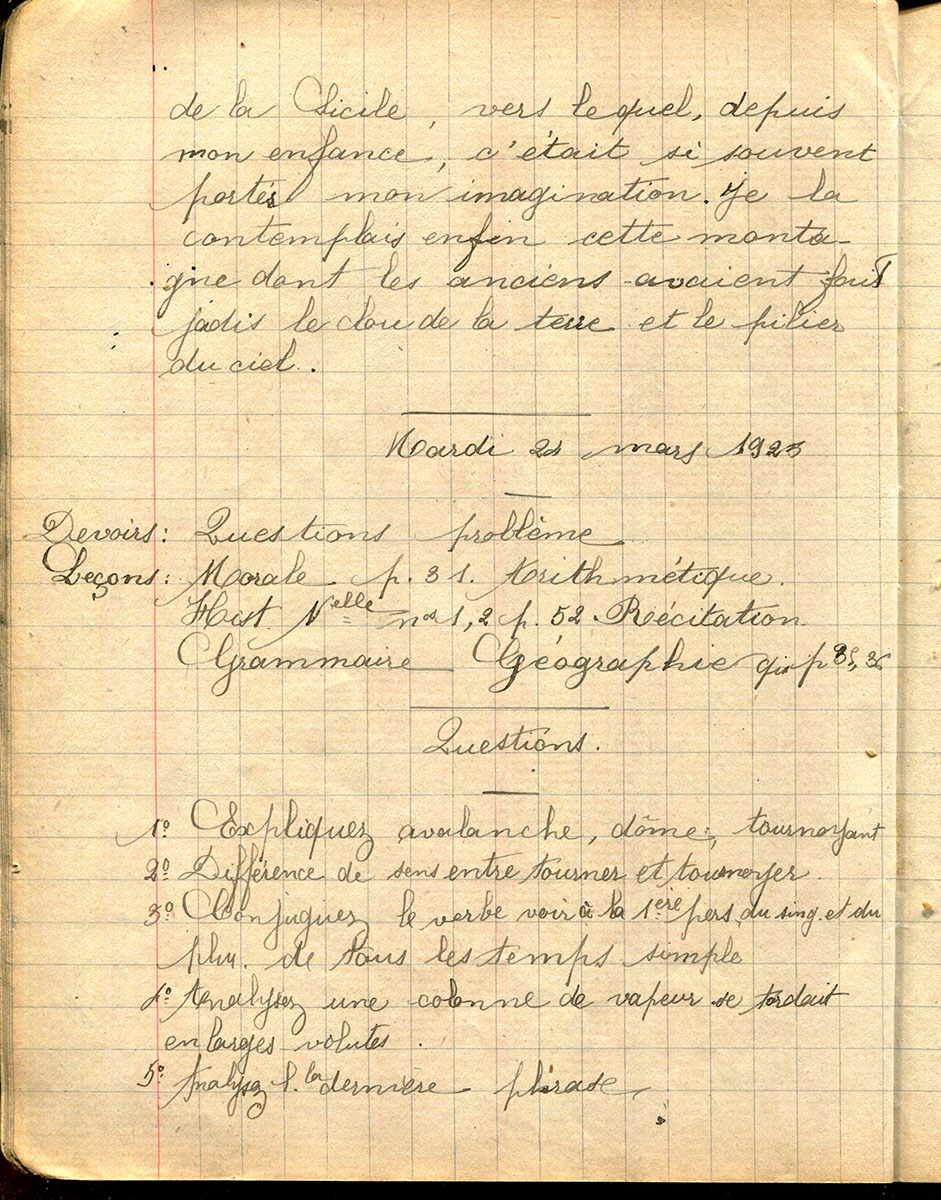 de la Sicile, vers lequel, depuis
mon enfance, c'était si souvent
portés mon imagination. Je la
contemplais enfin cette monta-
gne dont les anciens avaient fait
jadis le clou de la terre et le pilier
du ciel.
Mardi mars 1923
Devoirs: Questions problème
Leçons: Morale p. 31. Arithmétique.
Hist. Nelle nos 1, 2 p. 52. Récitation
Grammaire Géographie p
Questions.
1º Expliquez avalanche, dôme, tournoyant
2º Différence de sens entre tourner et tournoyer.
3º Conjuguez le verbe voir à la 1ère pers. du sing. et du
plu. de tous les temps simple
4º Analysez une colonne de vapeur se tordait
en larges volutes.
5º Analysez la dernière phrase